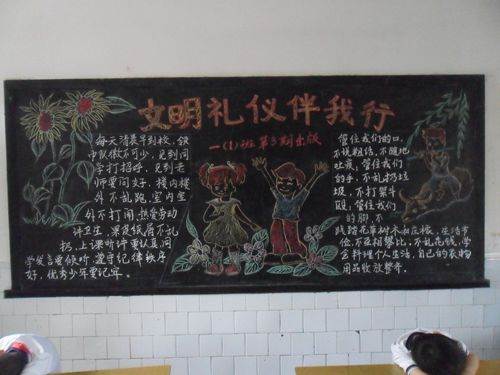 文明礼仪伴我行
一(1)班第3期出版
每天清晨早到校,敬
中队微不可少,见到同
学打招呼,见到老
师要问好,楼内楼
外不乱跑,室内室
外不打闹,热爱劳动
讲卫生,果皮纸屑不乱
扔,上课听讲要认真,回
学发言要倾听,遵守纪律秩序
好,优秀少年要记牢。
管住我们的口,
不说粗话,不随地
吐痰,管住我们
的手,不乱扔垃
圾,不打架斗
殴,管住我们
的脚,不
践踏花草树木和庄稼,生活节
位,不互相攀比,不乱花钱,学
会料理个人生活,自己的衣物
用品收放整齐。